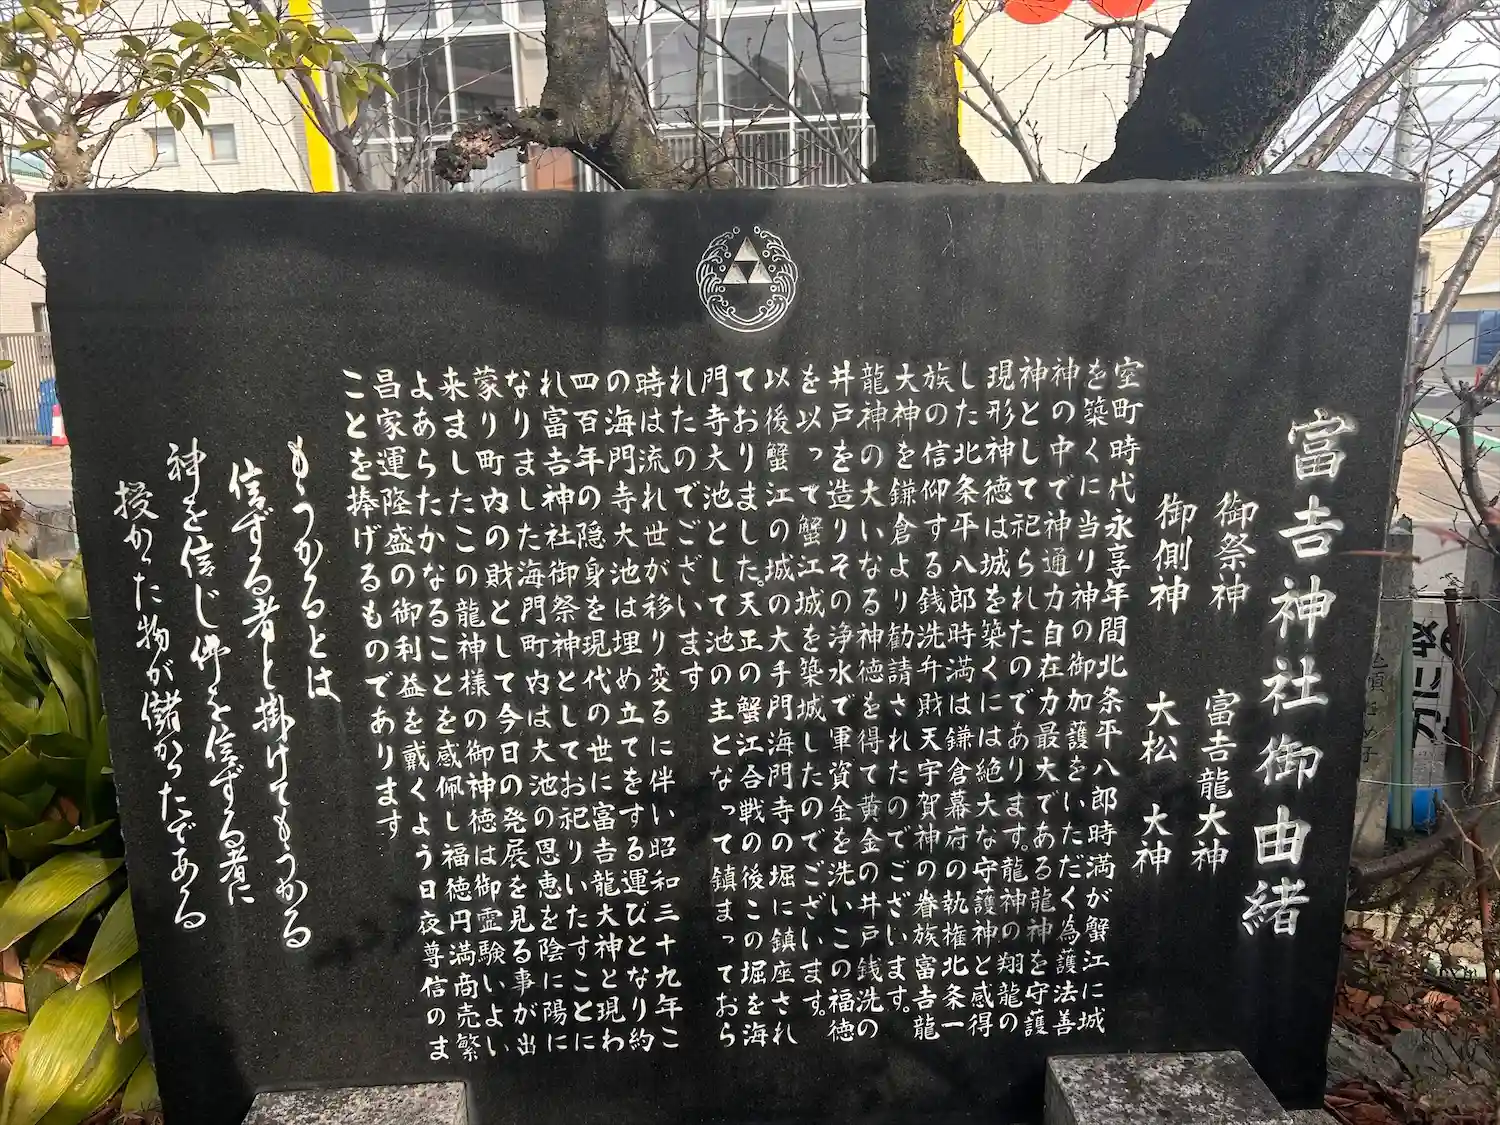 富吉神社御由緒
御祭神　富吉龍大神
御側神　大松　大神
室町時代永享年間北条平八郎時満が蟹江に城
を築くに当り神の御加護をいただく為護法善
神の中で神通力自在力最大である龍神を守護
神として祀られたのであります。龍神の翔龍の
現形神徳は城を築くには絶大な守護神と感得
した北条平八郎時満は鎌倉幕府の執権北条一
族の信仰する銭洗弁財天宇賀神の眷族富吉龍
大神を鎌倉より勧請されたのでございます。
龍神の大いなる神徳を得て黄金の井戸銭洗の
井戸を造りその浄水で軍資金を洗いこの福徳
を以って蟹江城を築城したのでございます。
以後蟹江の城の大手門海門寺の堀に鎮座され
ておりました。天正の蟹江合戦の後この堀を海
門寺大池として池の主となって鎮まっておら
れたのでございます
時は流れ世が移り変るに伴い昭和三十九年こ
の海門寺大池は埋め立てをする運びとなり約
四百年の隠身を現代の世に富吉龍大神と現わ
れ富吉神社御祭神としてお祀りいたすことに
なりました海門町内は大池の恩恵を陰に陽に
蒙り町内の財として今日の発展を見る事が出
来ましたこの龍神様の御神徳は御霊験いよい
よあらたかなることを感佩し福徳円満商売繁
昌家運隆盛の御利益を戴くよう日夜尊信のま
ことを捧げるものであります
もうかるとは
信ずる者と掛けてもうかる
神を信じ佛を信ずる者に
授かった物が儲かったである